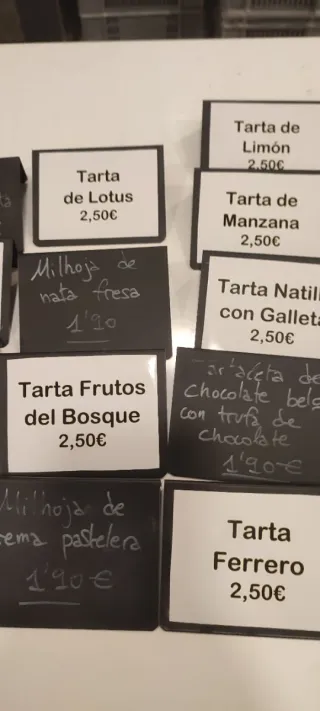 Tarta de
Limón
2,50€
Tarta
de Lotus
2,50€
Tarta de
Manzana
2,50€
Milhoja de
nata fresa
1'90
Tarta Natill
con Galleta
2,50€
Tarta Frutos
del Bosque
2,50€
Tartaleta de
chocolate belg
con trufa de
chocolate
1'90€
Milhoja de
rema pastelera
1'90€
Tarta
Ferrero
2,50€